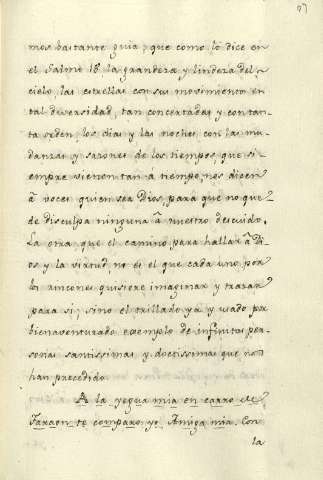 mos bastante guia; que como lo dice en
el Salmo 18. la grandeza y lindeza del
cielo, las estrellas con sus movimientos en
tal diversidad, tan concertadas y con tan-
ta orden, los dias y las noches, con las mu-
danzas y sazones de los tiempos, que si-
empre vienen tan a tiempo, nos dicen
â voces quien sea Dios, para que no que-
de disculpa ninguna â nuestro descuido.
La otra, que el camino para hallar â Di-
os y la virtud, no es el que cada uno por
los rincones quisiere imaginar y trazar
para si; sino el trillado ya y usado por
bienaventurado exemplo de infinitas per-
sonas santissimas y doctissimas que nos
han precedido.
A la yegua mia en carro de
Faraon te comparo yo, Amiga mia. Con
la